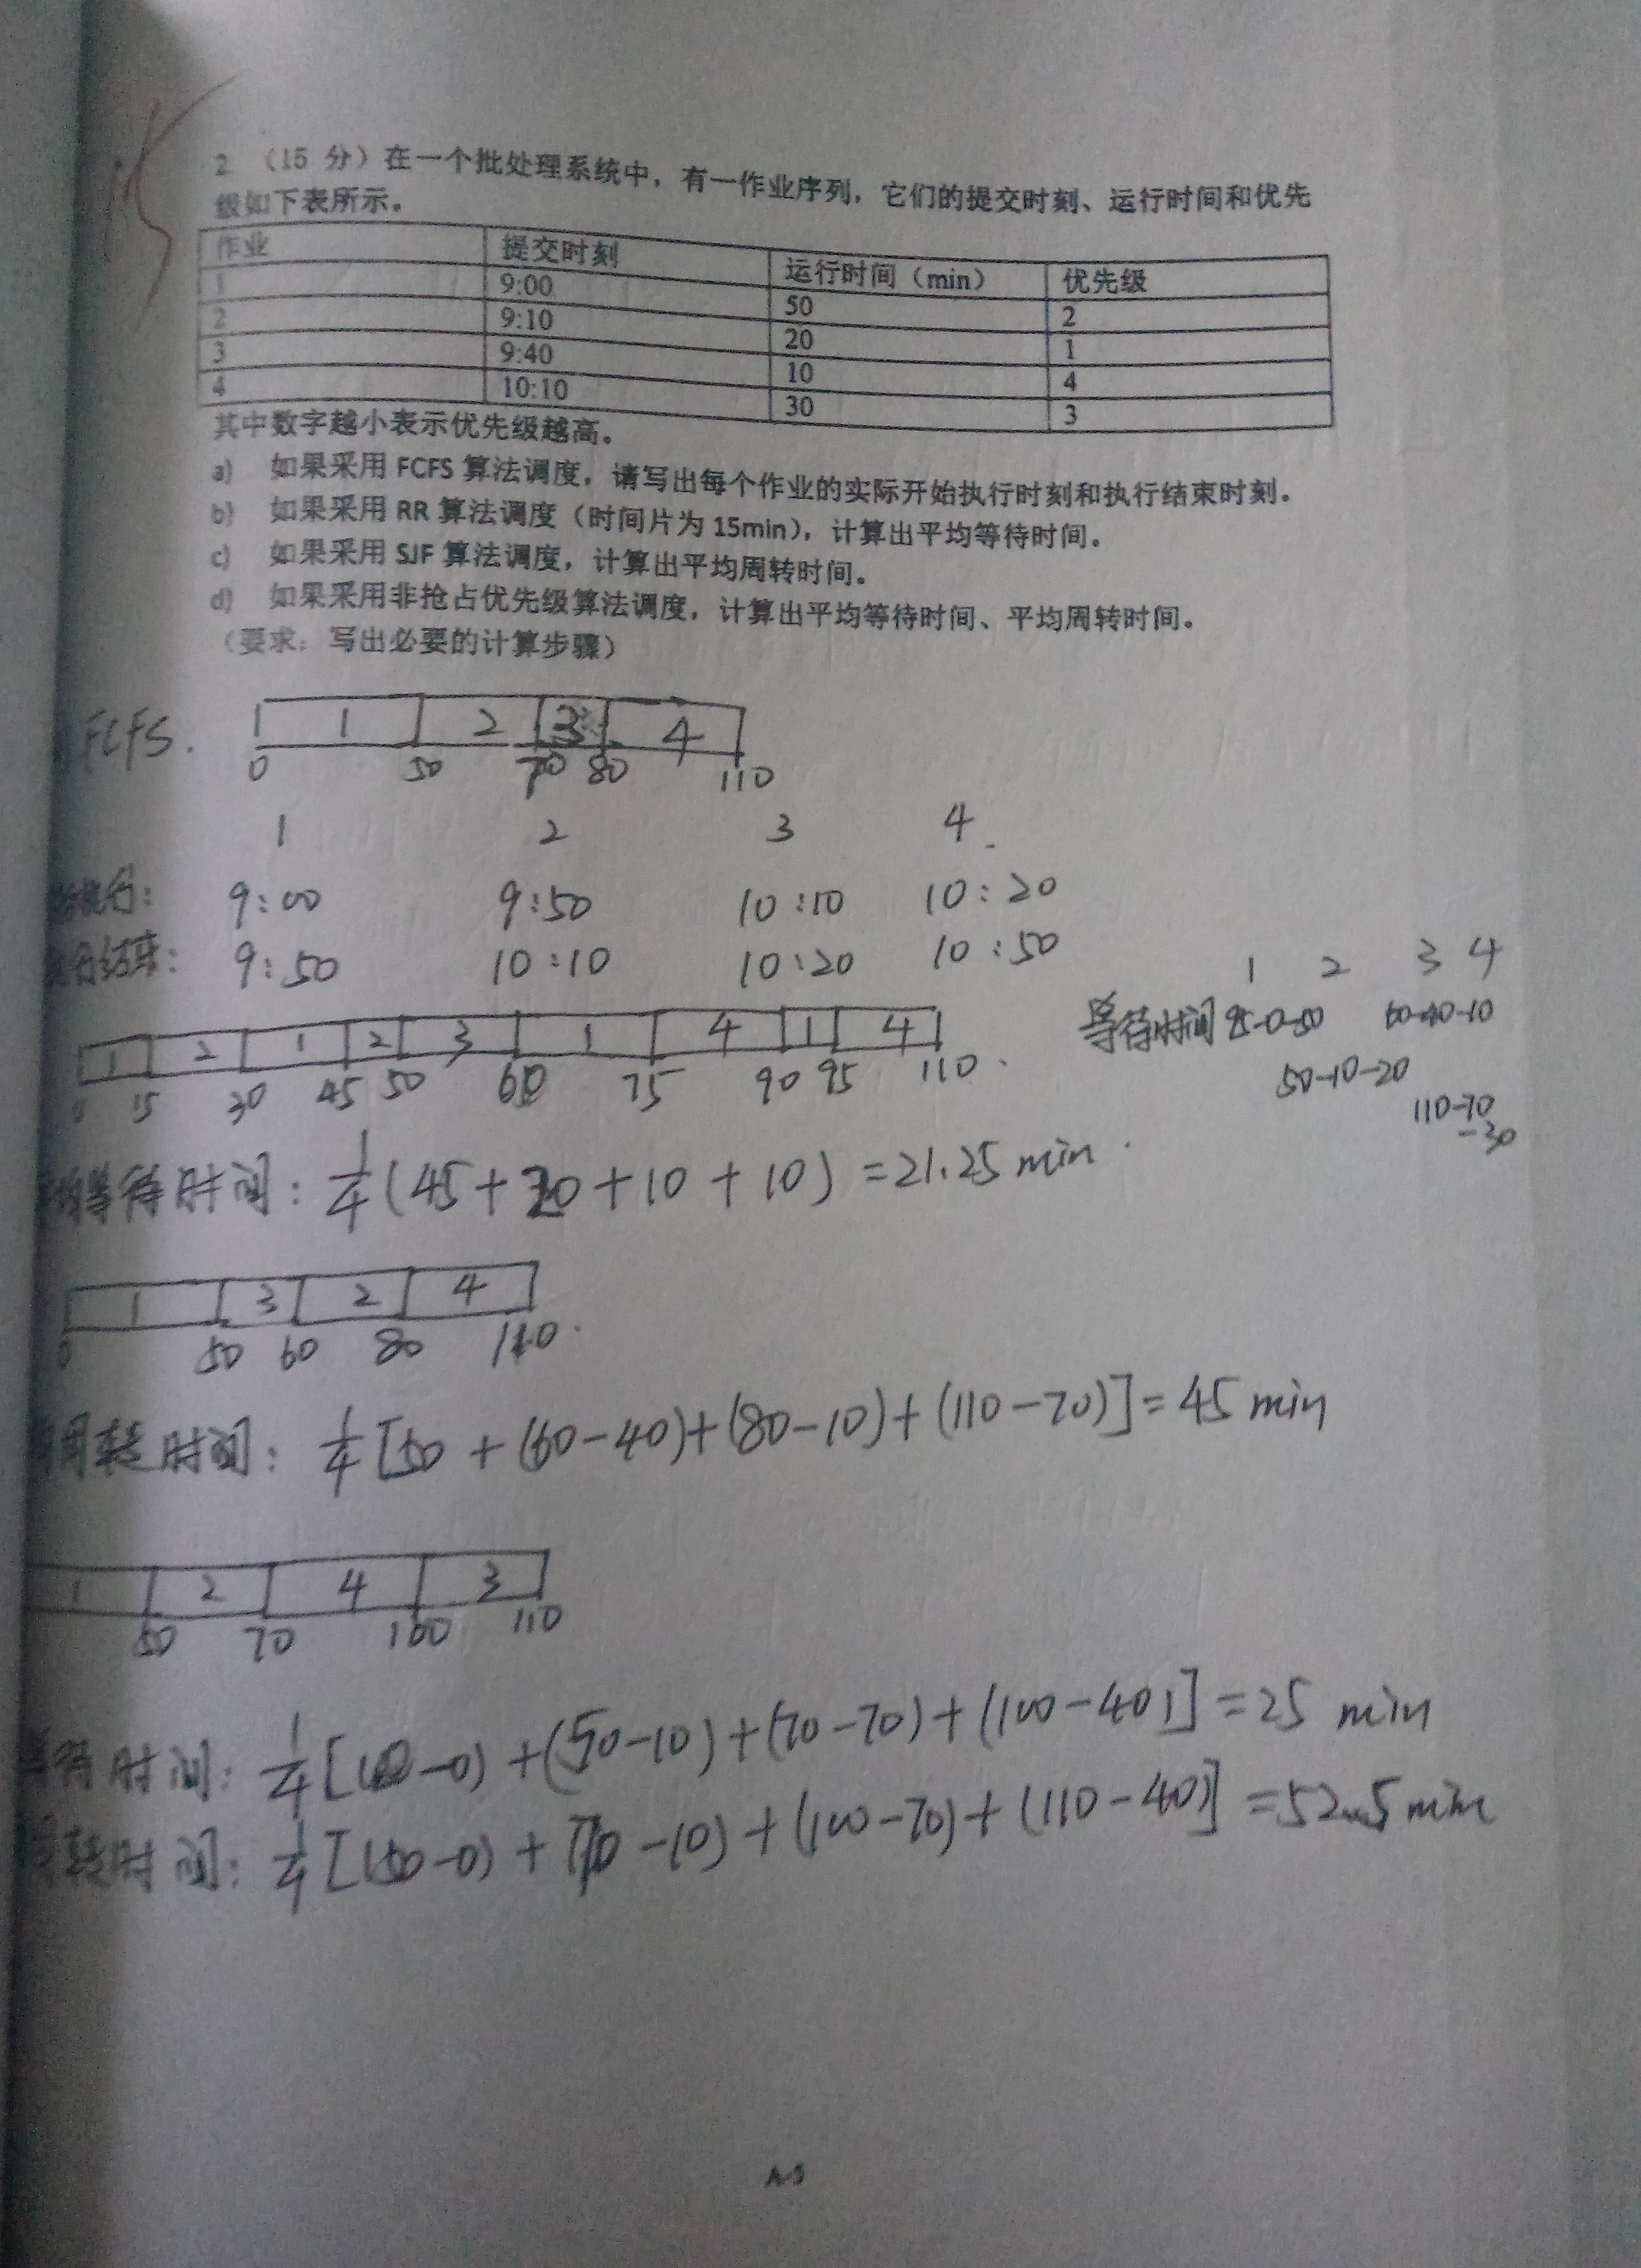 15
2 （15 分）在一个批处理系统中，有一作业序列，它们的提交时刻、运行时间和优先
级如下表所示。
作业 提交时刻 运行时间（min） 优先级
1 9:00 50 2
2 9:10 20 1
3 9:40 10 4
4 10:10 30 3
其中数字越小表示优先级越高。
a) 如果采用 FCFS 算法调度，请写出每个作业的实际开始执行时刻和执行结束时刻.
b) 如果采用 RR 算法调度（时间片为 15min），计算出平均等待时间。
c) 如果采用 SJF 算法调度，计算出平均周转时间。
d) 如果采用非抢占优先级算法调度，计算出平均等待时间、平均周转时间。
（要求：写出必要的计算步骤）
FCFS. 1 2 3 4
0 50 70 80 110
1 2 3 4
执行: 9:00 9:50 10:10 10:20
结束: 9:50 10:10 10:20 10:50
1 2 3 4
等待时间 95-0-50 60-40-10
50-10-20
110-70
-30
1 2 1 2 3 1 4 1 4
0 15 30 45 50 60 75 90 95 110
等待时间: 1/4 (45+20+10+10) =21.25 min
1 3 2 4
0 50 60 80 110
周转时间: 1/4 [50+(60-40)+(80-10)+(110-70)]=45 min
1 2 4 3
50 70 100 110
待时间: 1/4 [(0-0)+(50-10)+(70-70)+(100-40)] =25 min
转时间: 1/4 [(50-0)+(70-10)+(100-70)+(110-40)] =52.5 min
A-5